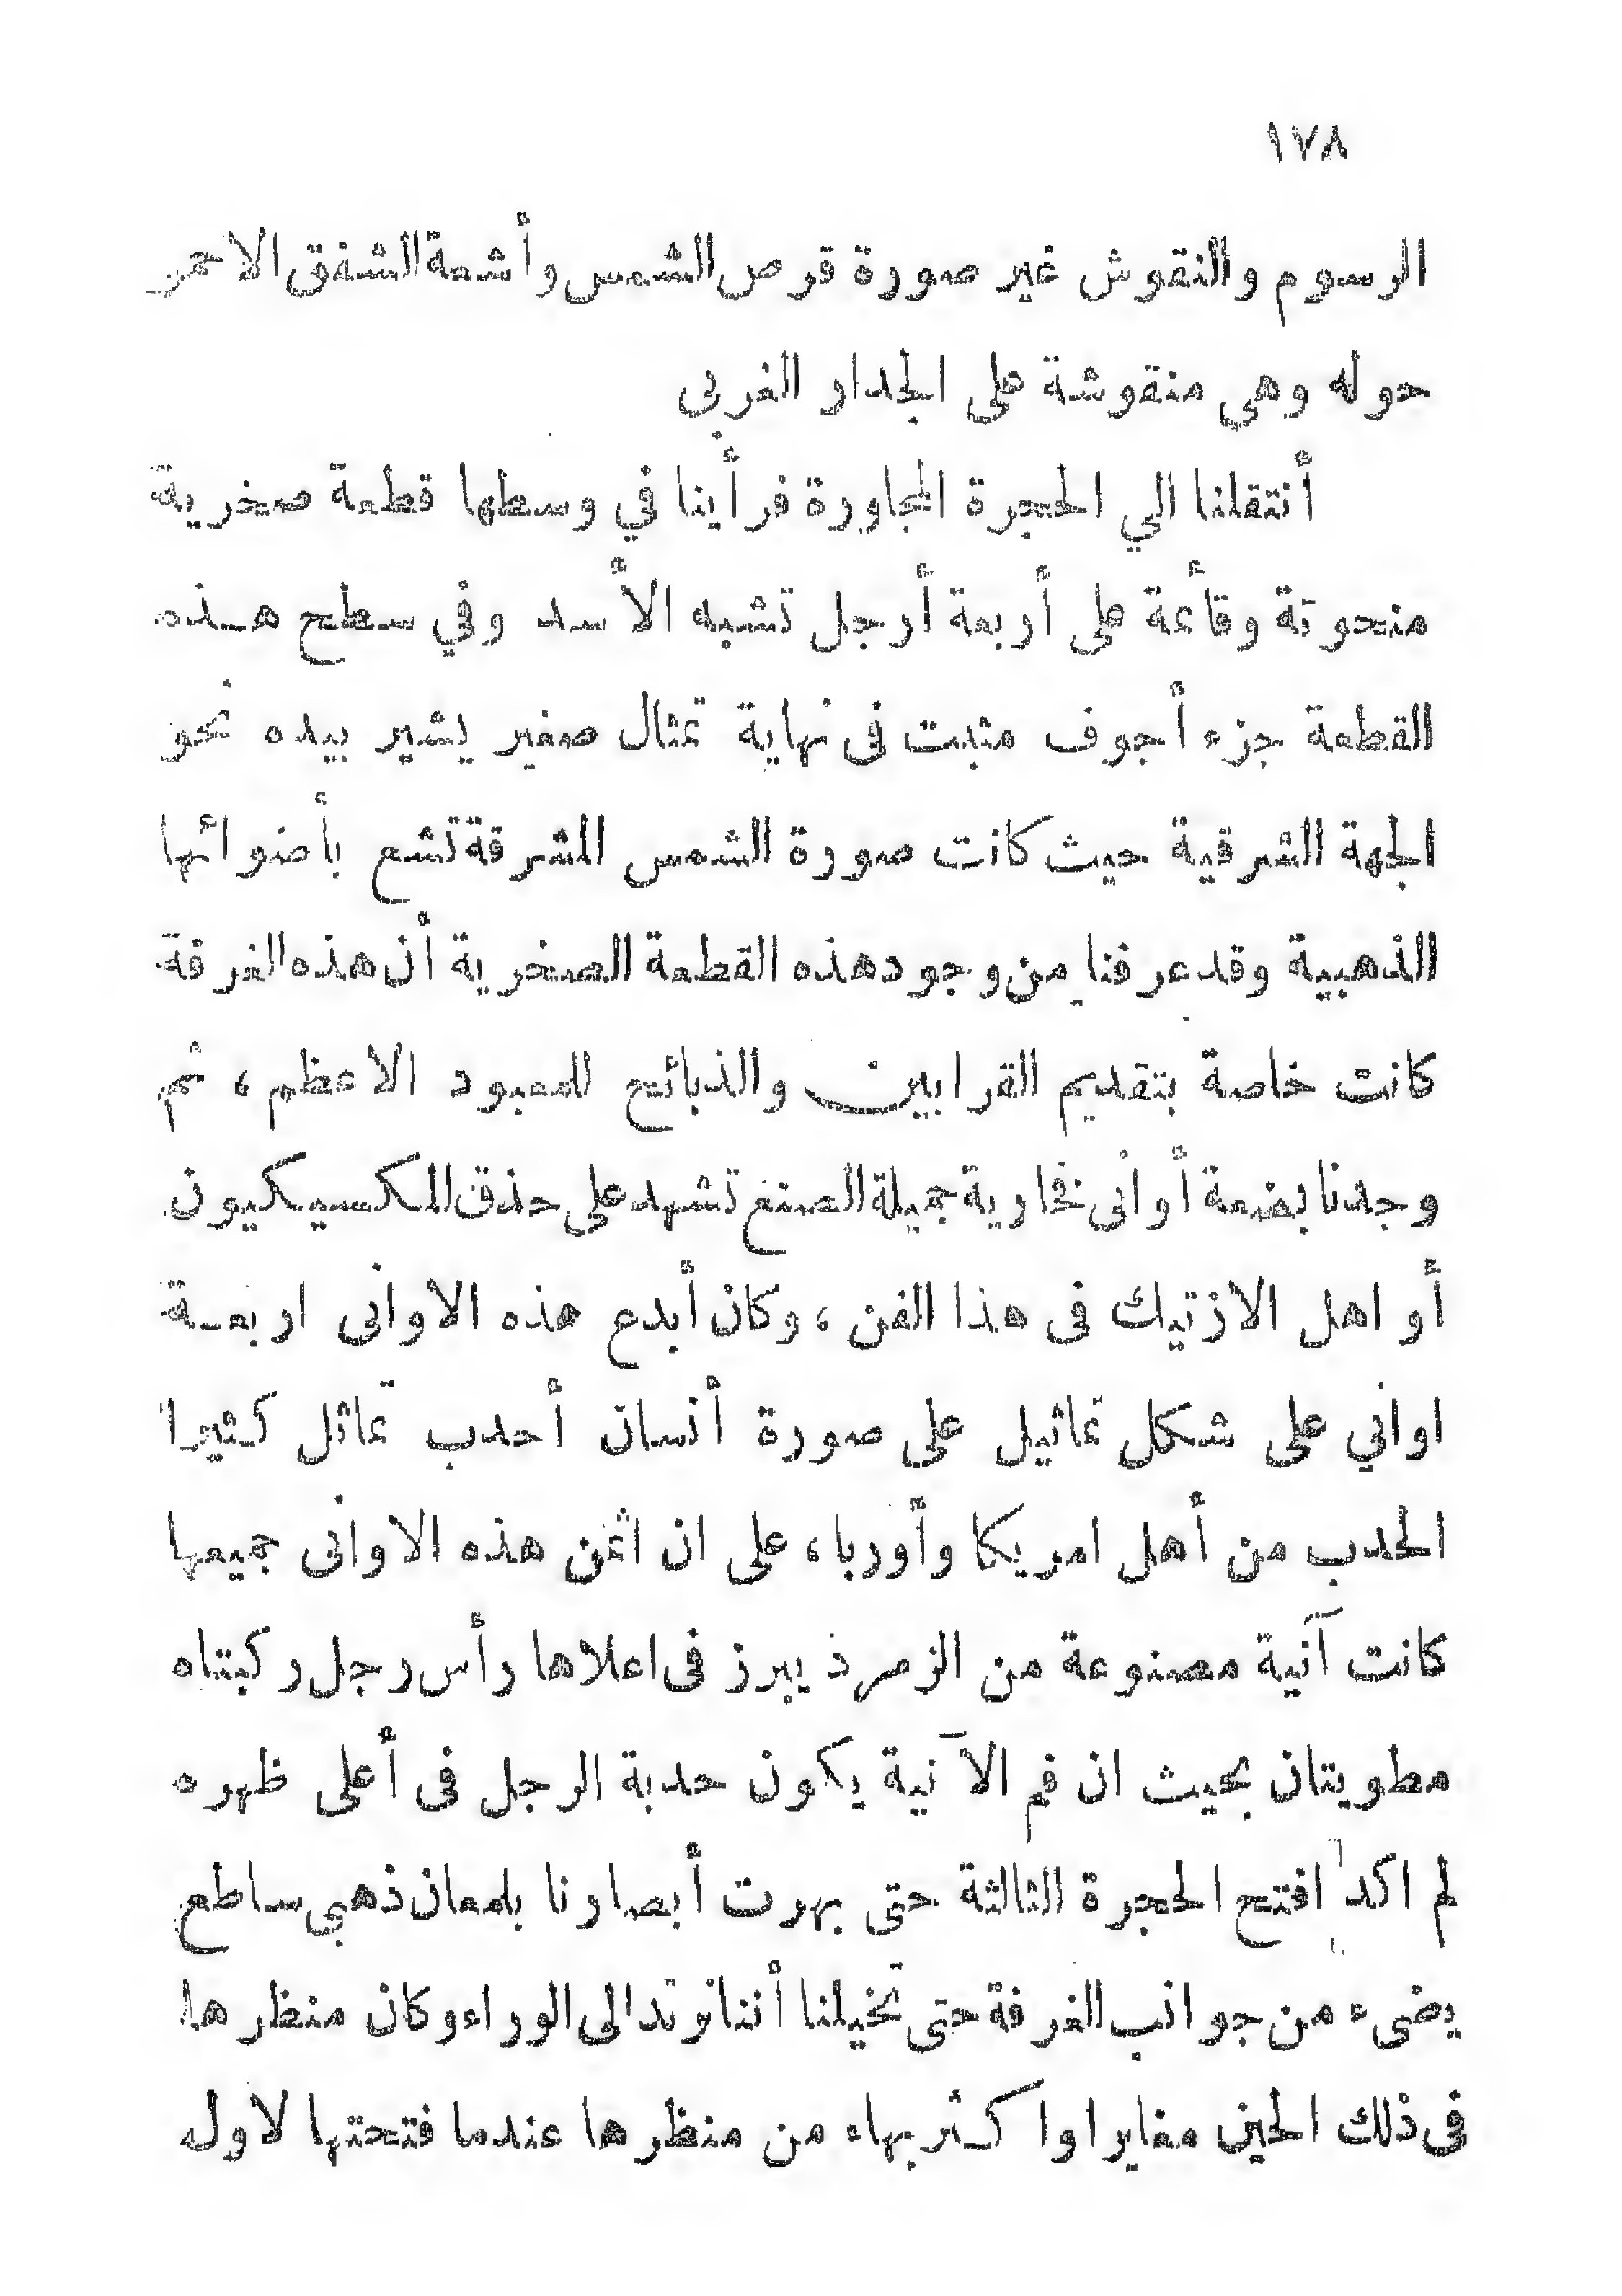 ١٧٨
الرسوم والنقوش غير صورة قرص الشمس وأشعة الشفق الاحمر
حوله وهى منقوشة على الجدار الغربى
أنتقلنا الي الحجرة المجاورة فرأينا في وسطها قطعة صخرية
منحوتة وقأئمة على أربعة أرجل تشبه الأسد وفي سطح هـذه
القطعة جزء أجوف مثبت فى نهاية تمثال صغير يشير بيده نحو
الجهة الشرقية حيث كانت صورة الشمس المشرقة تشع بأضوائها
الذهبية وقد عرفنا من وجود هذه القطعة الصخرية أن هذه الغرفة
كانت خاصة بتقديم القرابين والذبائح للمعبود الاعظم ، ثم
وجدنا بضعة أوانى فخارية جميلة الصنع تشهد على حذق المكسيكيون
أو اهل الازتيك فى هذا الفن ، وكان أبدع هذه الاوانى اربعـة
اواني على شكل تماثيل على صورة أنسان أحدب تماثل كثيرا
الحدب من أهل امريكا وأوربا ، على ان اثمن هذه الاوانى جميعها
كانت آنية مصنوعة من الزمرد يبرز فى اعلاها رأس رجل ركبتاه
مطويتان بحيث ان فم الآنية يكون حدبة الرجل فى أعلى ظهره
لم اكد افتتح الحجرة الثالثة حتى بهرت أبصارنا بلمعان ذهبي ساطع
يضىء من جوانب الغرفة حتى تخيلنا أننا نرتد الى الوراء وكان منظرها
فى ذلك الحين مغايرا واكـثر بهاء من منظرها عندما فتحتها لاول